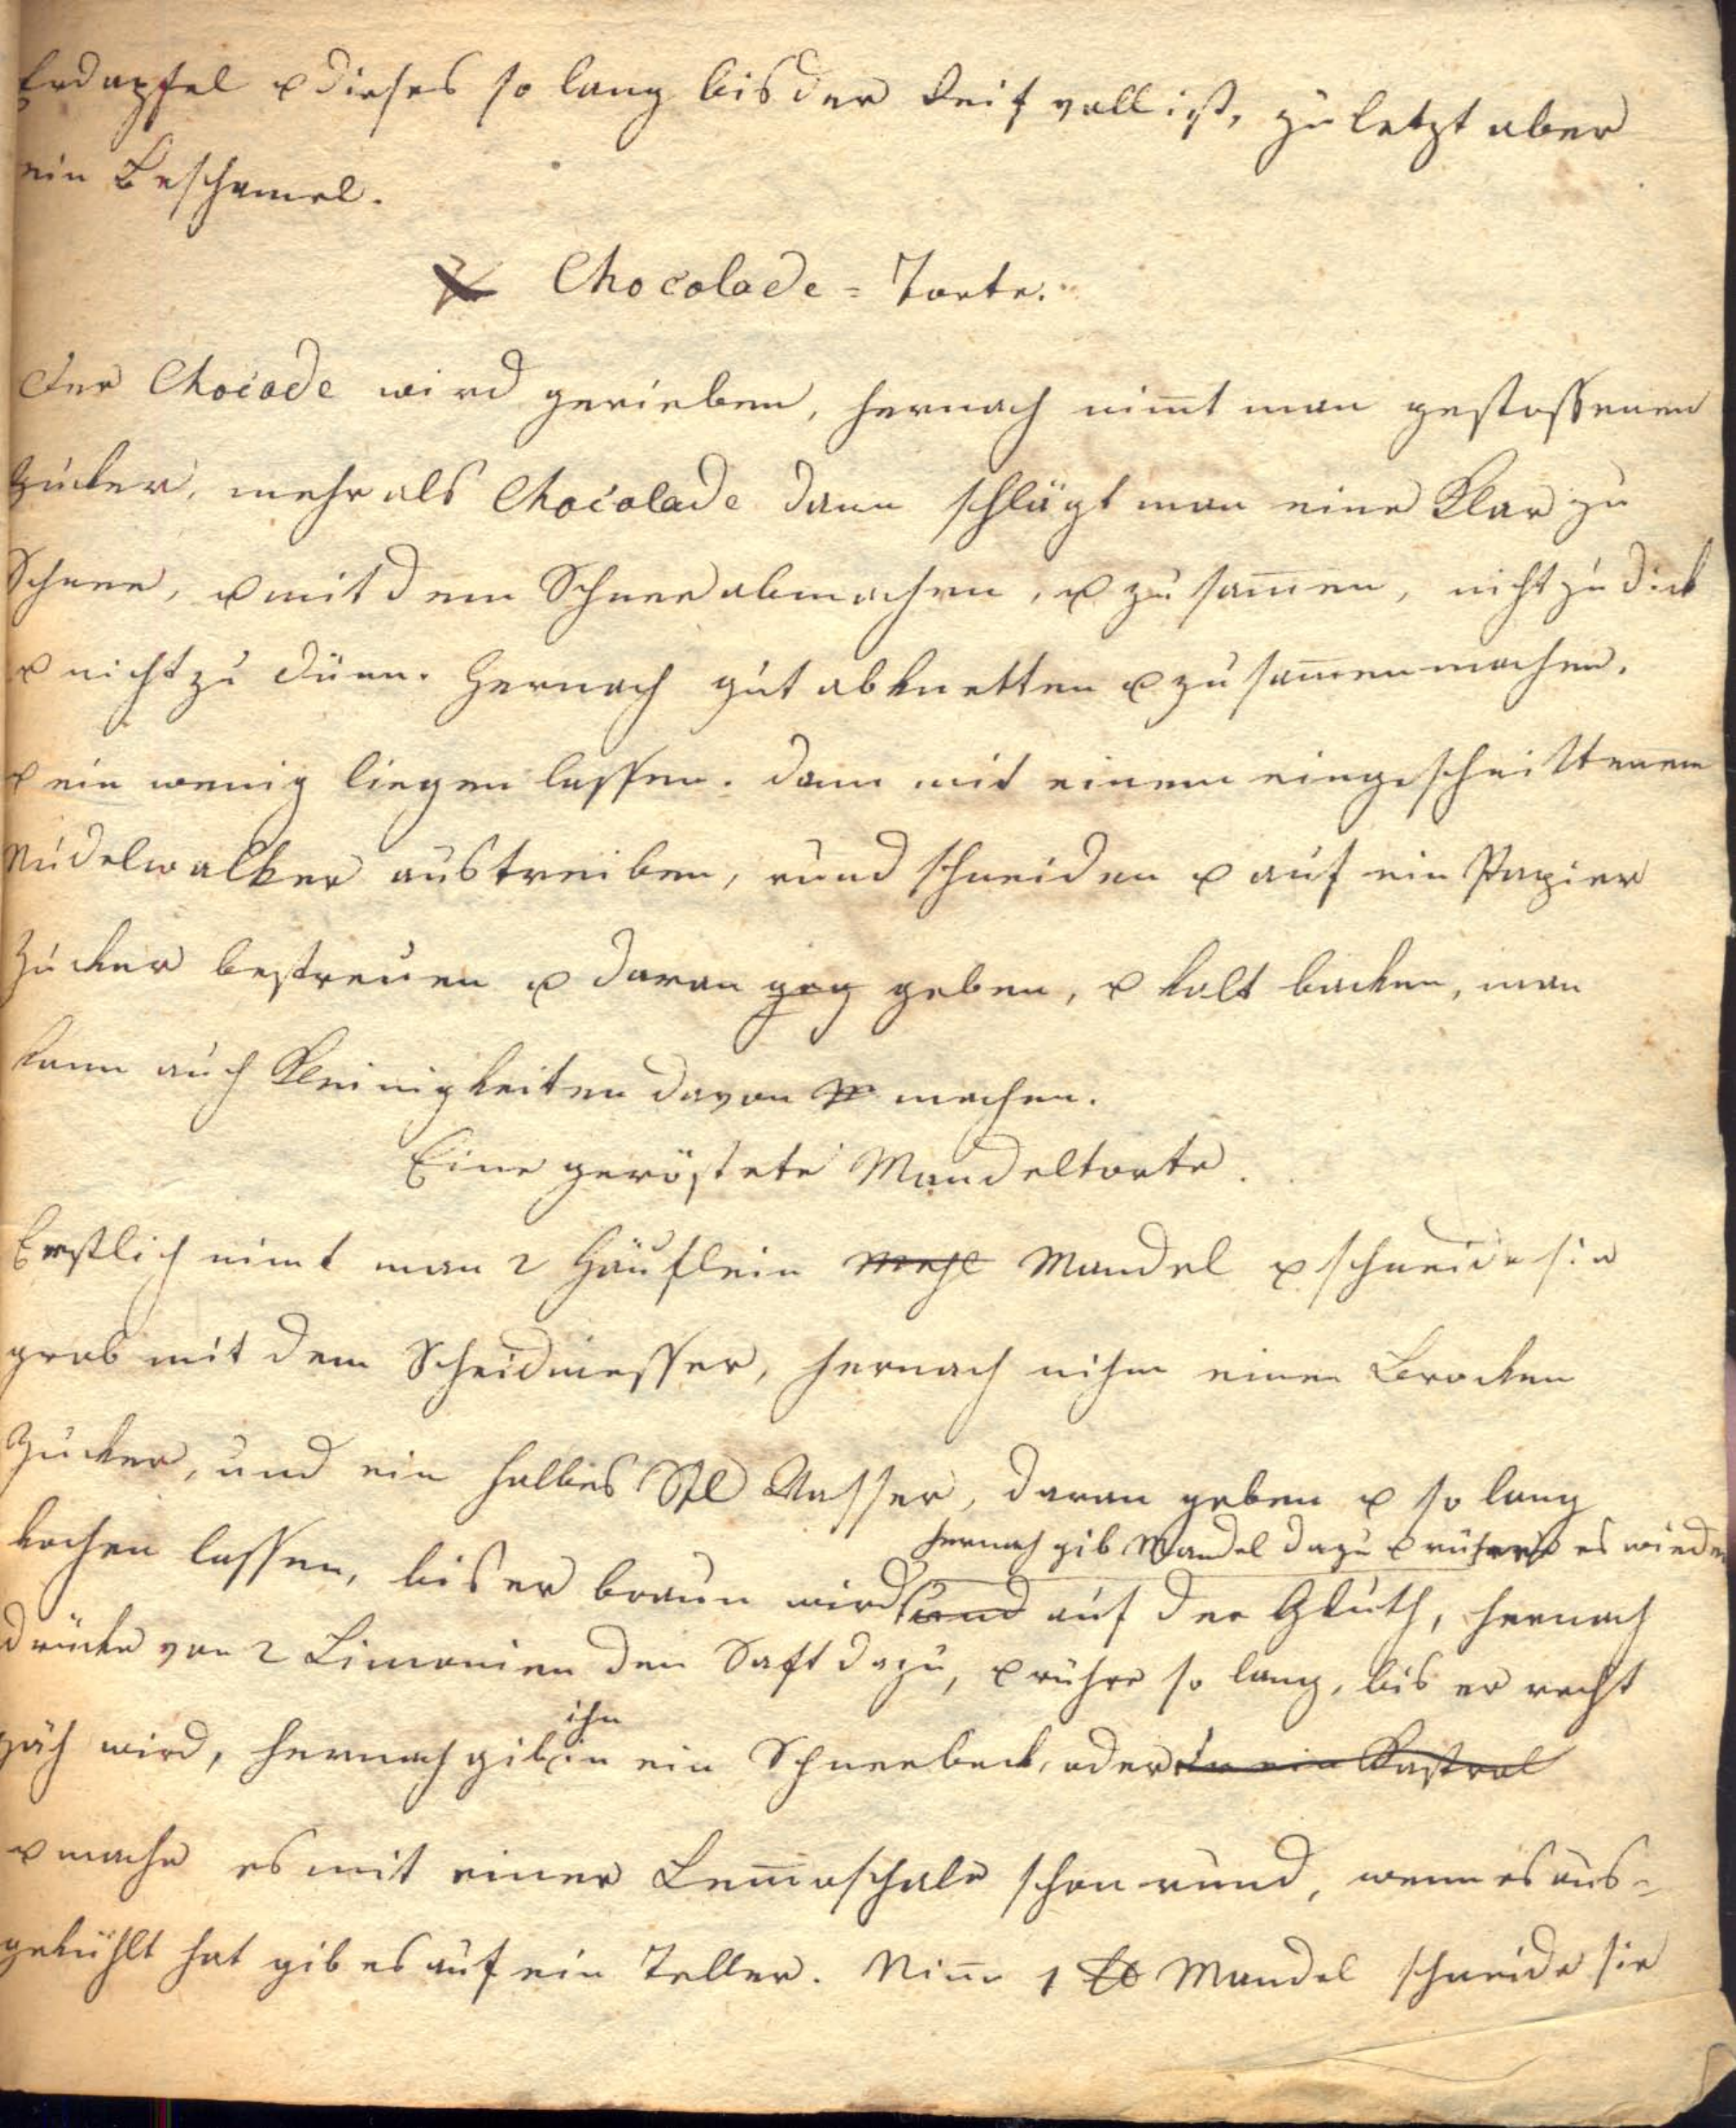 Erdapfel u dieses so lang bis der Reif voll ist, zu letzt aber
ein Beschamel.
Chocolade = Torte.
Der Chocade wird gerieben, hernach nim̅t man gestossenen
Zucker, mehr als Chocolade dann schlägt man eine Klar zu
Schnee, u mit dem Schnee abmachen, u zu sam̅en, nicht zu dick
u nicht zu dünn. Hernach gut abknetten u zu sam̅enmachen.
u ein wenig liegen lassen. dann mit einem eingeschnittenem
Nudelwalker austreiben, rund schneiden u auf ein Papier
Zucker bestreuen u daran geg geben, u kalt backen, man
kann auch Kleinigkeiten davon machen.
Eine geröstete Mandeltorte.
Erstlich nimt man 2 Häuflein Mehl Mandel u schneide sie
grob mit dem Scheidmesser, hernach nihm einen Brocken
Zucker, und ein halbes Stl Wasser, daran geben u so lang
hernach gib Mandel dazu u rühre es wieder
kochen lassen, bis er braun wird und auf der Gluth, hernach
drücke von 2 Limonien den Saft dazu, u rühre so lang, bis er recht
zäh wird, hernach gib ihn in ein Schneebeck, oder in ein Kastrol
u mache es mit einer Lem̅oschale schon rund, wenn es aus-
gekühlt hat gib es auf ein Teller. Nim̅ 1 ℔ Mandel schneide sie